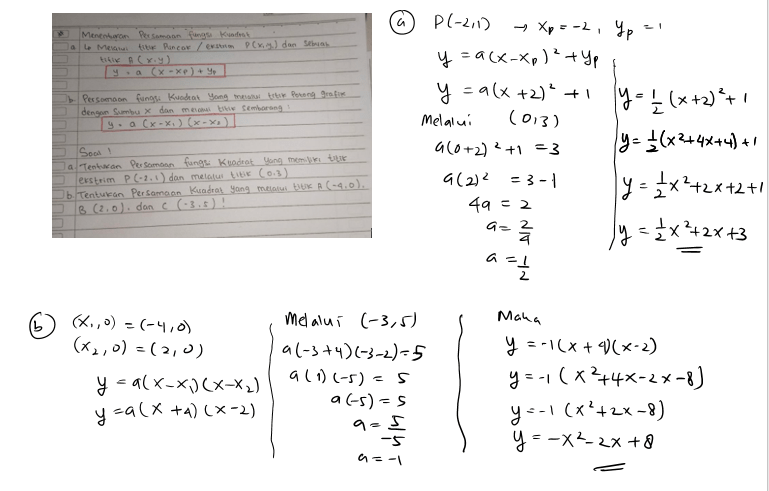 * Menentukan Persamaan fungsi Kuadrat
a. Melalui titik Puncak / ekstrim P(x,y) dan Sebuah
titik B (x,y)
y = a (x - xp) + yp
b. Persamaan fungsi Kuadrat yang melalui titik Potong grafik
dengan Sumbu X dan melalui titik Sembarang :
y = a (x - x₁) (x - x₂)
Soal !
a. Tentukan Persamaan fungsi Kuadrat yang memiliki titik
ekstrim P (-2,1) dan melalui titik (0,3)
b. Tentukan Persamaan Kuadrat yang melalui titik A (-4,0),
B (2,0), dan C (-3,5) !
(a) P(-2,1) → xp = -2, yp = 1
y = a(x-xp)² + yp
y = a(x+2)² + 1
Melalui (0,3)
a(0+2)² + 1 = 3
a(2)² = 3-1
4a = 2
a = 2/4
a = 1/2
y = 1/2 (x+2)² + 1
y = 1/2 (x²+4x+4) + 1
y = 1/2 x² + 2x + 2 + 1
y = 1/2 x² + 2x + 3
(b) (x₁,0) = (-4,0)
(x₂,0) = (2,0)
y = a(x-x₁)(x-x₂)
y = a(x+4)(x-2)
Melalui (-3,5)
a(-3+4)(-3-2) = 5
a(1)(-5) = 5
a(-5) = 5
a = 5/-5
a = -1
Maka
y = -1(x+4)(x-2)
y = -1(x²+4x-2x-8)
y = -1(x²+2x-8)
y = -x²-2x+8